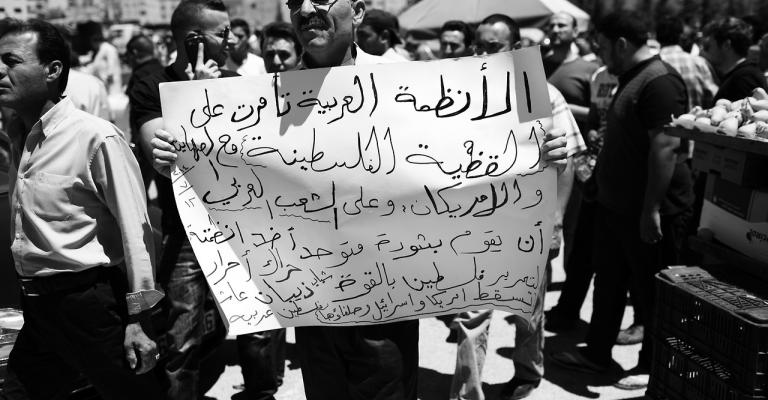 الأنظمة العربية تآمرت على
القضية الفلسطينية مع الصهاينة
والأمريكان، وعلى الشعب العربي
أن يقوم بثورة موحدة ضد أنظمته
لتحرير فلسطين بالقوة حراك أحرار ذيبان
تسقط امريكا واسرائيل وحلفاؤها فلسطين عربية